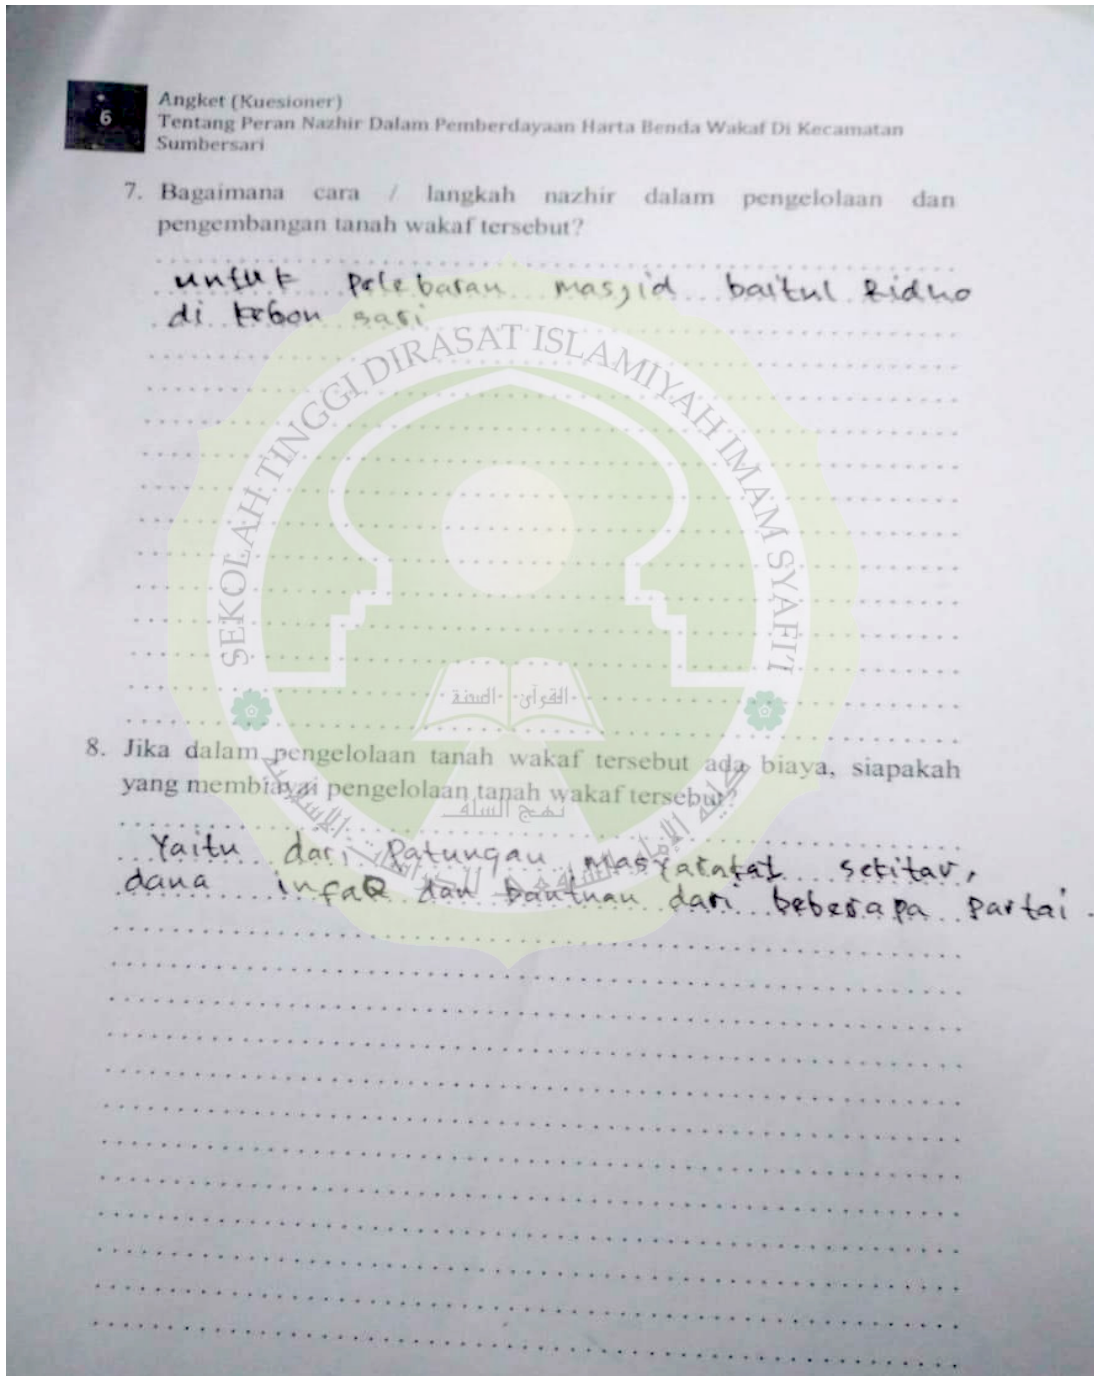 6
Angket (Kuesioner)
Tentang Peran Nazhir Dalam Pemberdayaan Harta Benda Wakaf Di Kecamatan
Sumbersari
7. Bagaimana cara / langkah nazhir dalam pengelolaan dan
pengembangan tanah wakaf tersebut?
untuk pelebaran masjid baitul Ridho
di kebon sari
SEKOLAH TINGGI DIRASAT ISLAMIYAH IMAM SYAFI'I
القرآن السنة
8. Jika dalam pengelolaan tanah wakaf tersebut ada biaya, siapakah
yang membiayai pengelolaan tanah wakaf tersebut?
نهج السلف
Yaitu dari Patungan masyarakat sekitar,
dana infaQ dan bantuan dari beberapa partai.